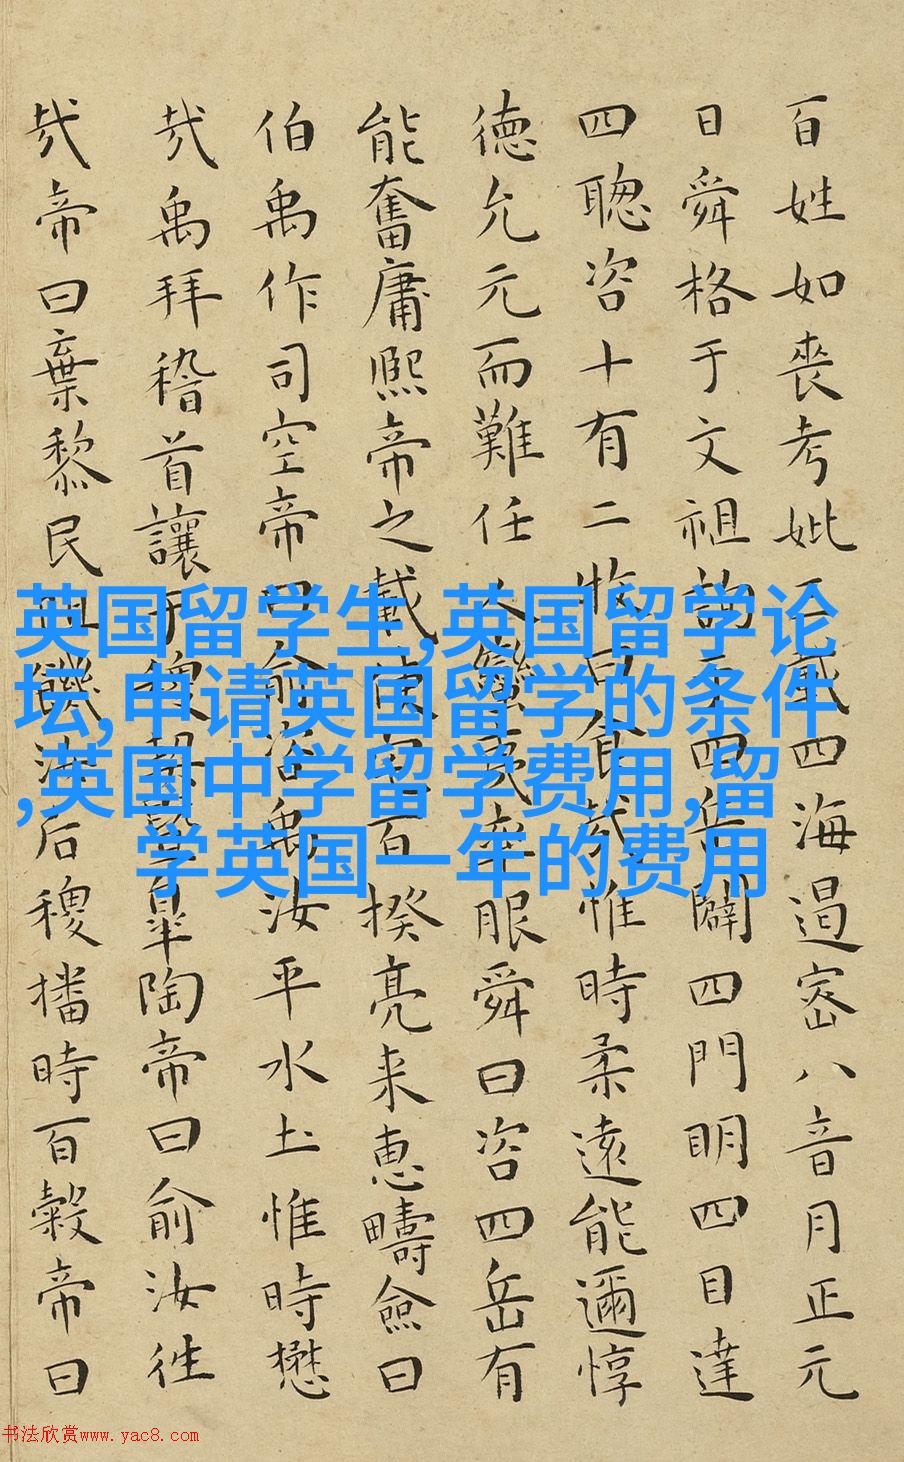 百姓如喪考妣三載四海遏密八音月正元
日舜格于文祖詢于四岳闢四門明四目達
四聦咨十有二牧曰食哉惟時柔遠能邇惇
徳允元而難任人蠻夷率服舜曰咨四岳有
能奮庸熙帝之載使宅百揆亮来惠疇僉曰
伯禹作司空帝曰俞咨禹汝平水土惟時懋
哉禹拜稽首讓于稷契暨皋陶帝曰俞汝往
哉帝曰棄黎民阻饑汝后稷播時百穀帝曰
英国留学生,英国留学论
坛,申请英国留学的条件
,英国中学留学费用,留
学英国一年的费用
书法欣赏www.yac8.com